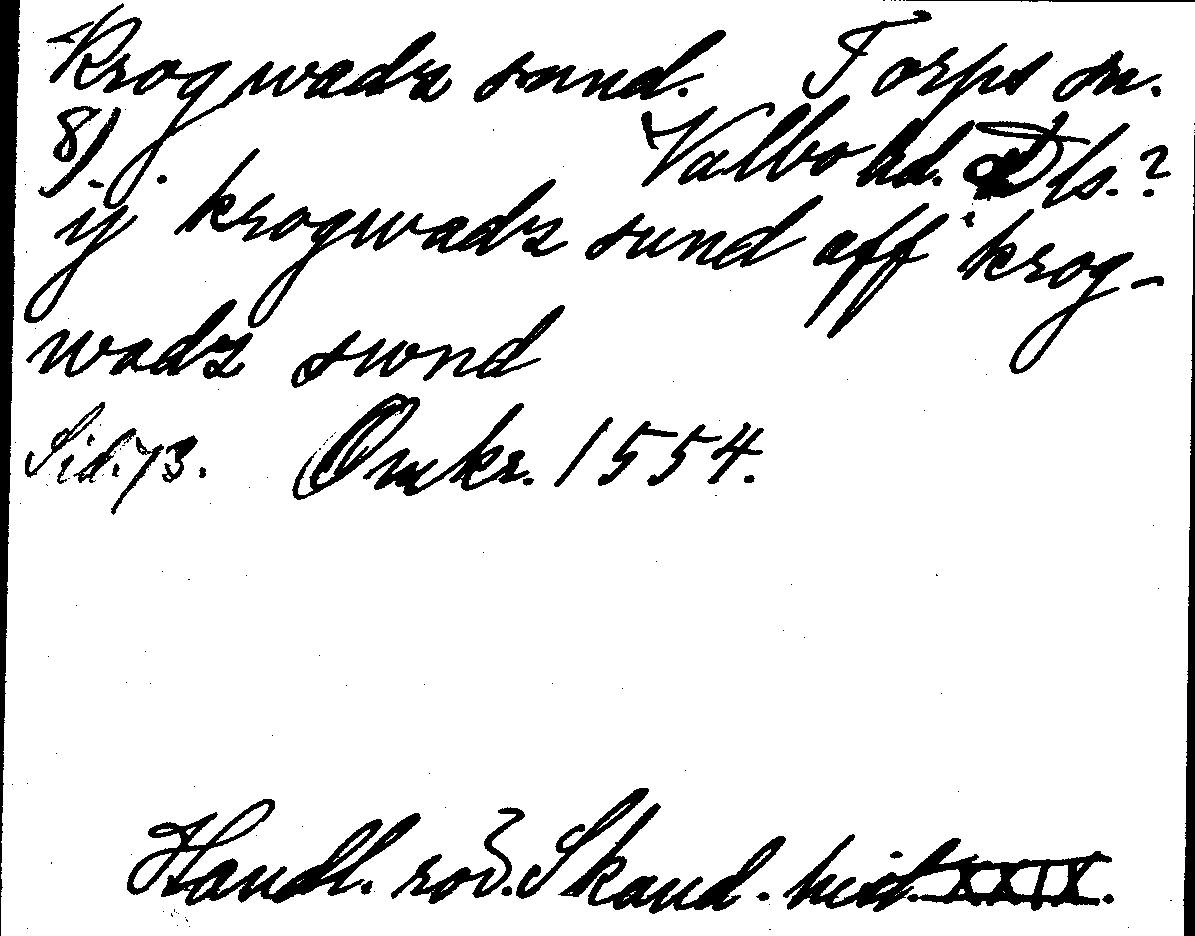 Krogwadz sund. Torps sn.
8). Valbo hd. Dls.?
ij krogwadz sund aff krog-
wadz swnd
Sid. 73. Omkr. 1554.
Handl. rör. Skand. hist. XXIX.